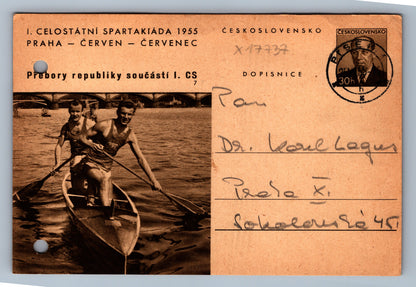 I. CELOSTÁTNÍ SPARTAKIÁDA 1955
PRAHA – ČERVEN – ČERVENEC
Přebory republiky součástí I. CS
7
ČESKOSLOVENSKO
X 17737
DOPISNICE
ČESKOSLOVENSKO
30h
Pan
Dr. Karel
Praha X.
Sokolovská 45